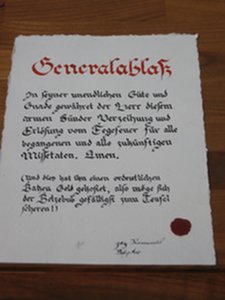 Generalablaß
In seyner unendlichen Güte und
Gnade gewähret der Herr diesem
armen Sünder Verzeihung und
Erlösung vom Fegefeuer für alle
begangenen und alle zukünftigen
Missetaten. Amen.
(Und dies hat ihn einen ordentlichen
Batzen Geld gekostet, also möge sich
der Belzebub gefälligst zum Teufel
scheren!!)